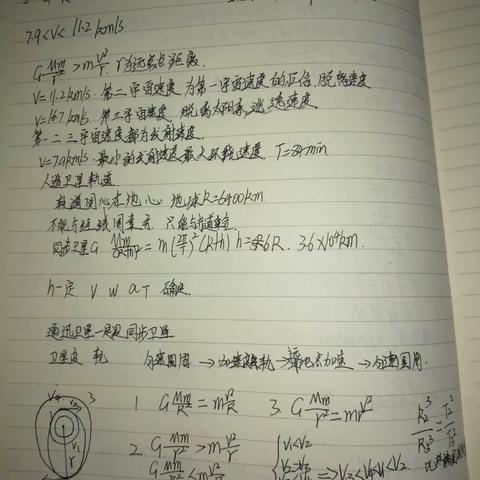 7.9<v< 11.2km/s
G Mm/r² > m v²/r r为远点距离.
v=11.2km/s. 第二宇宙速度 为第一宇宙速度的√2倍, 脱离速度
v=16.7km/s. 第三宇宙速度 脱离太阳系, 逃逸速度.
第一二三宇宙速度都为发射速度.
v=7.9km/s. 最小的发射速度 最大环绕速度 T=84min
人造卫星轨道
轨道圆心在地心 地球R=6400km
不能与经线圈重合. 只能与赤道重合
同步卫星 G Mm/(R+h)² = m(2π/T)²(R+h) h=6R. 3.6×10⁴km.
h一定. v w a T 确定.
通讯卫星一般是同步卫星
卫星变轨 匀速圆周 → 加速变轨 → 加速 → 匀速圆周.
1 G Mm/R² = m v²/R 3. G Mm/r² = m v²/r
R₂³/R₃³ = T₂²/T₃²
2. G Mm/r² > m v²/r
G Mm/r² < m v²/r
v₁<v₂
=> v₃<v₄<v₁<v₂
3
v₁
r